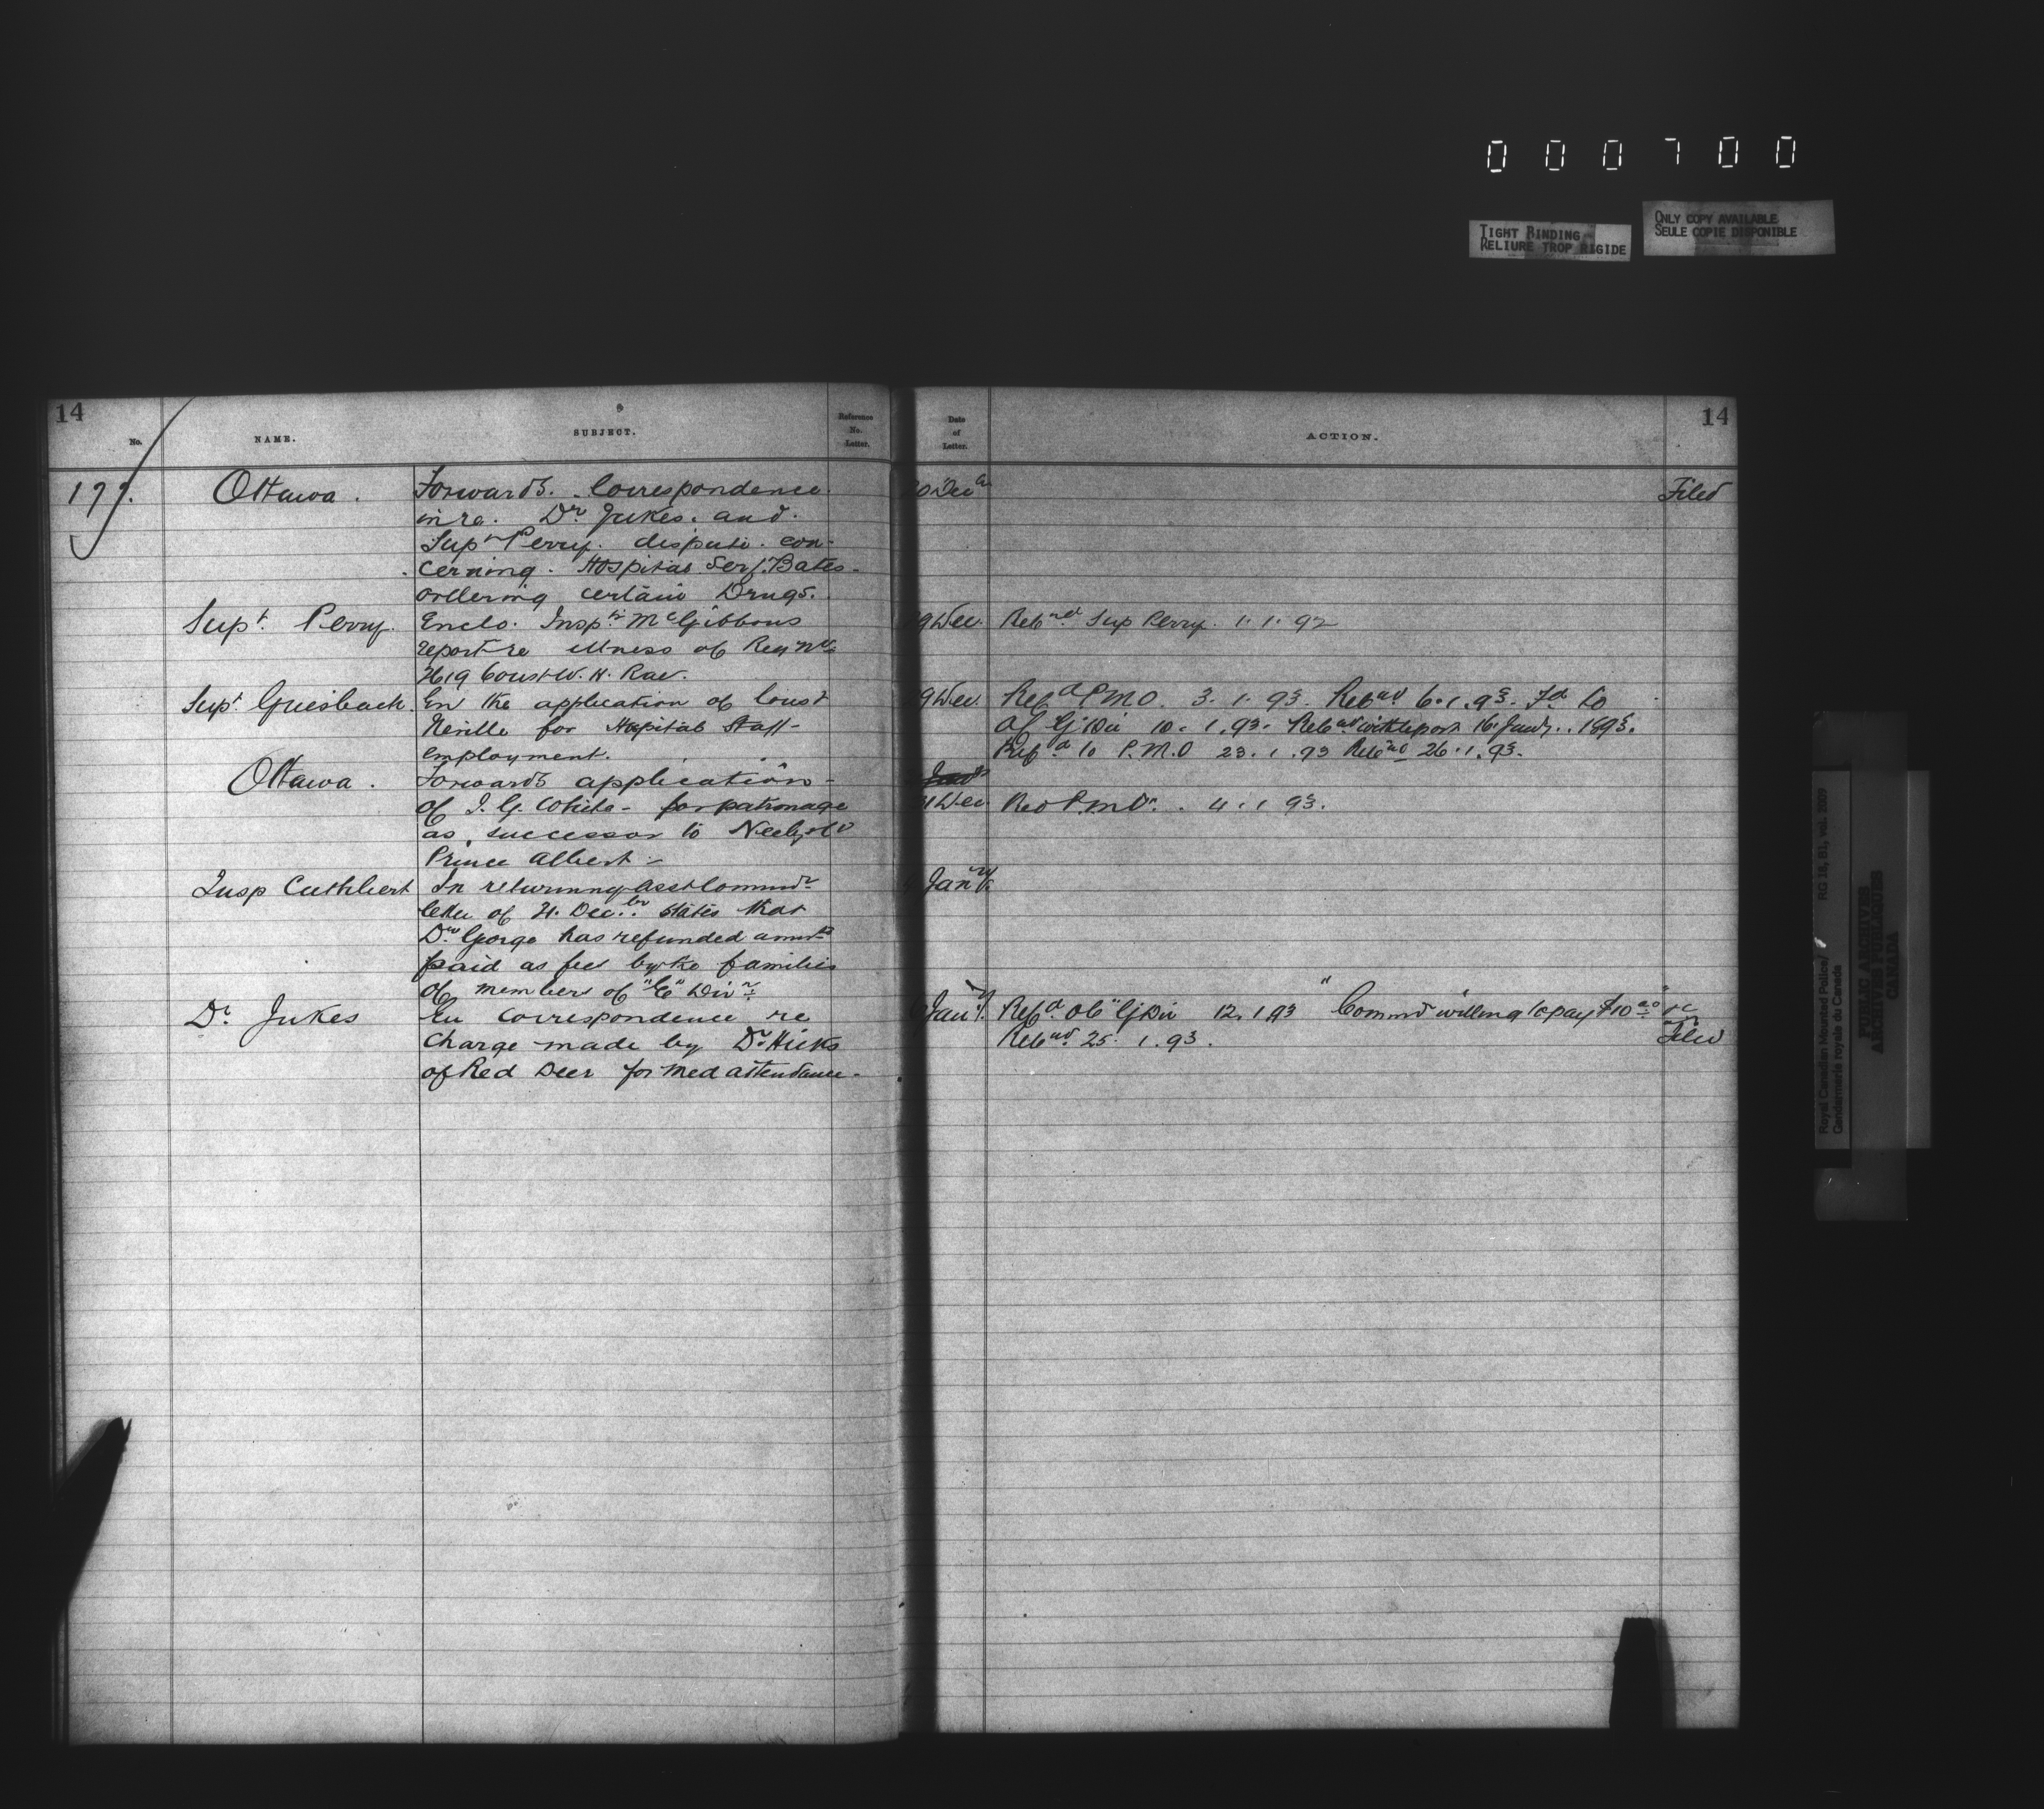 000700
TIGHT BINDING
RELIURE TROP RIGIDE
ONLY COPY AVAILABLE
SEULE COPIE DISPONIBLE
14
No.
NAME.
SUBJECT.
Reference
No.
Letter.
Date
of
Letter.
ACTION.
14
177.
Ottawa.
Forwards. Correspondence
in re. Dr. Jukes. and.
Supt Perry. dispute. con-
cerning. Hospital Serj. Bates
ordering certain Drugs.
Dec
Filed
Supt. Perry.
Enclo. Inspr McGibbons
report re illness of Reg No
2619 Const W. H. Rae.
9 Dec.
Sup Perry. 1. 1. 92
Supt. Griesbach.
En the application of Const
Neville for Hospital Staff
employment.
9 Dec.
Refd P.M.O. 3. 1. 93. Retnd 6. 1. 93. Fd to
OC G Div 10. 1. 93. Retnd with report 16. Jany. 1893.
Refd to P.M.O 23. 1. 93 Retnd 26. 1. 93.
Ottawa.
Forwards application
of J. G. White - for patronage
as successor to Neely at
Prince Albert -
Dec.
4. 1 93.
Insp Cuthbert
In returning Asst Commdr
letter of 21. Decbr. states that
Dr. George has refunded amnts
paid as fees by the families
of members of "E" Divn.
Jany.
Dr. Jukes
En Correspondence re
Charge made by Dr Hicks
of Red Deer for Med attendance.
Jany.
Refd OC "G" Div 12. 1 93 "Commr willing to pay $10.00" &c
Retnd. 25. 1. 93.
Filed
Royal Canadian Mounted Police/ RG 18, B1, vol. 2009
Gendarmerie royale du Canada
PUBLIC ARCHIVES
ARCHIVES PUBLIQUES
CANADA